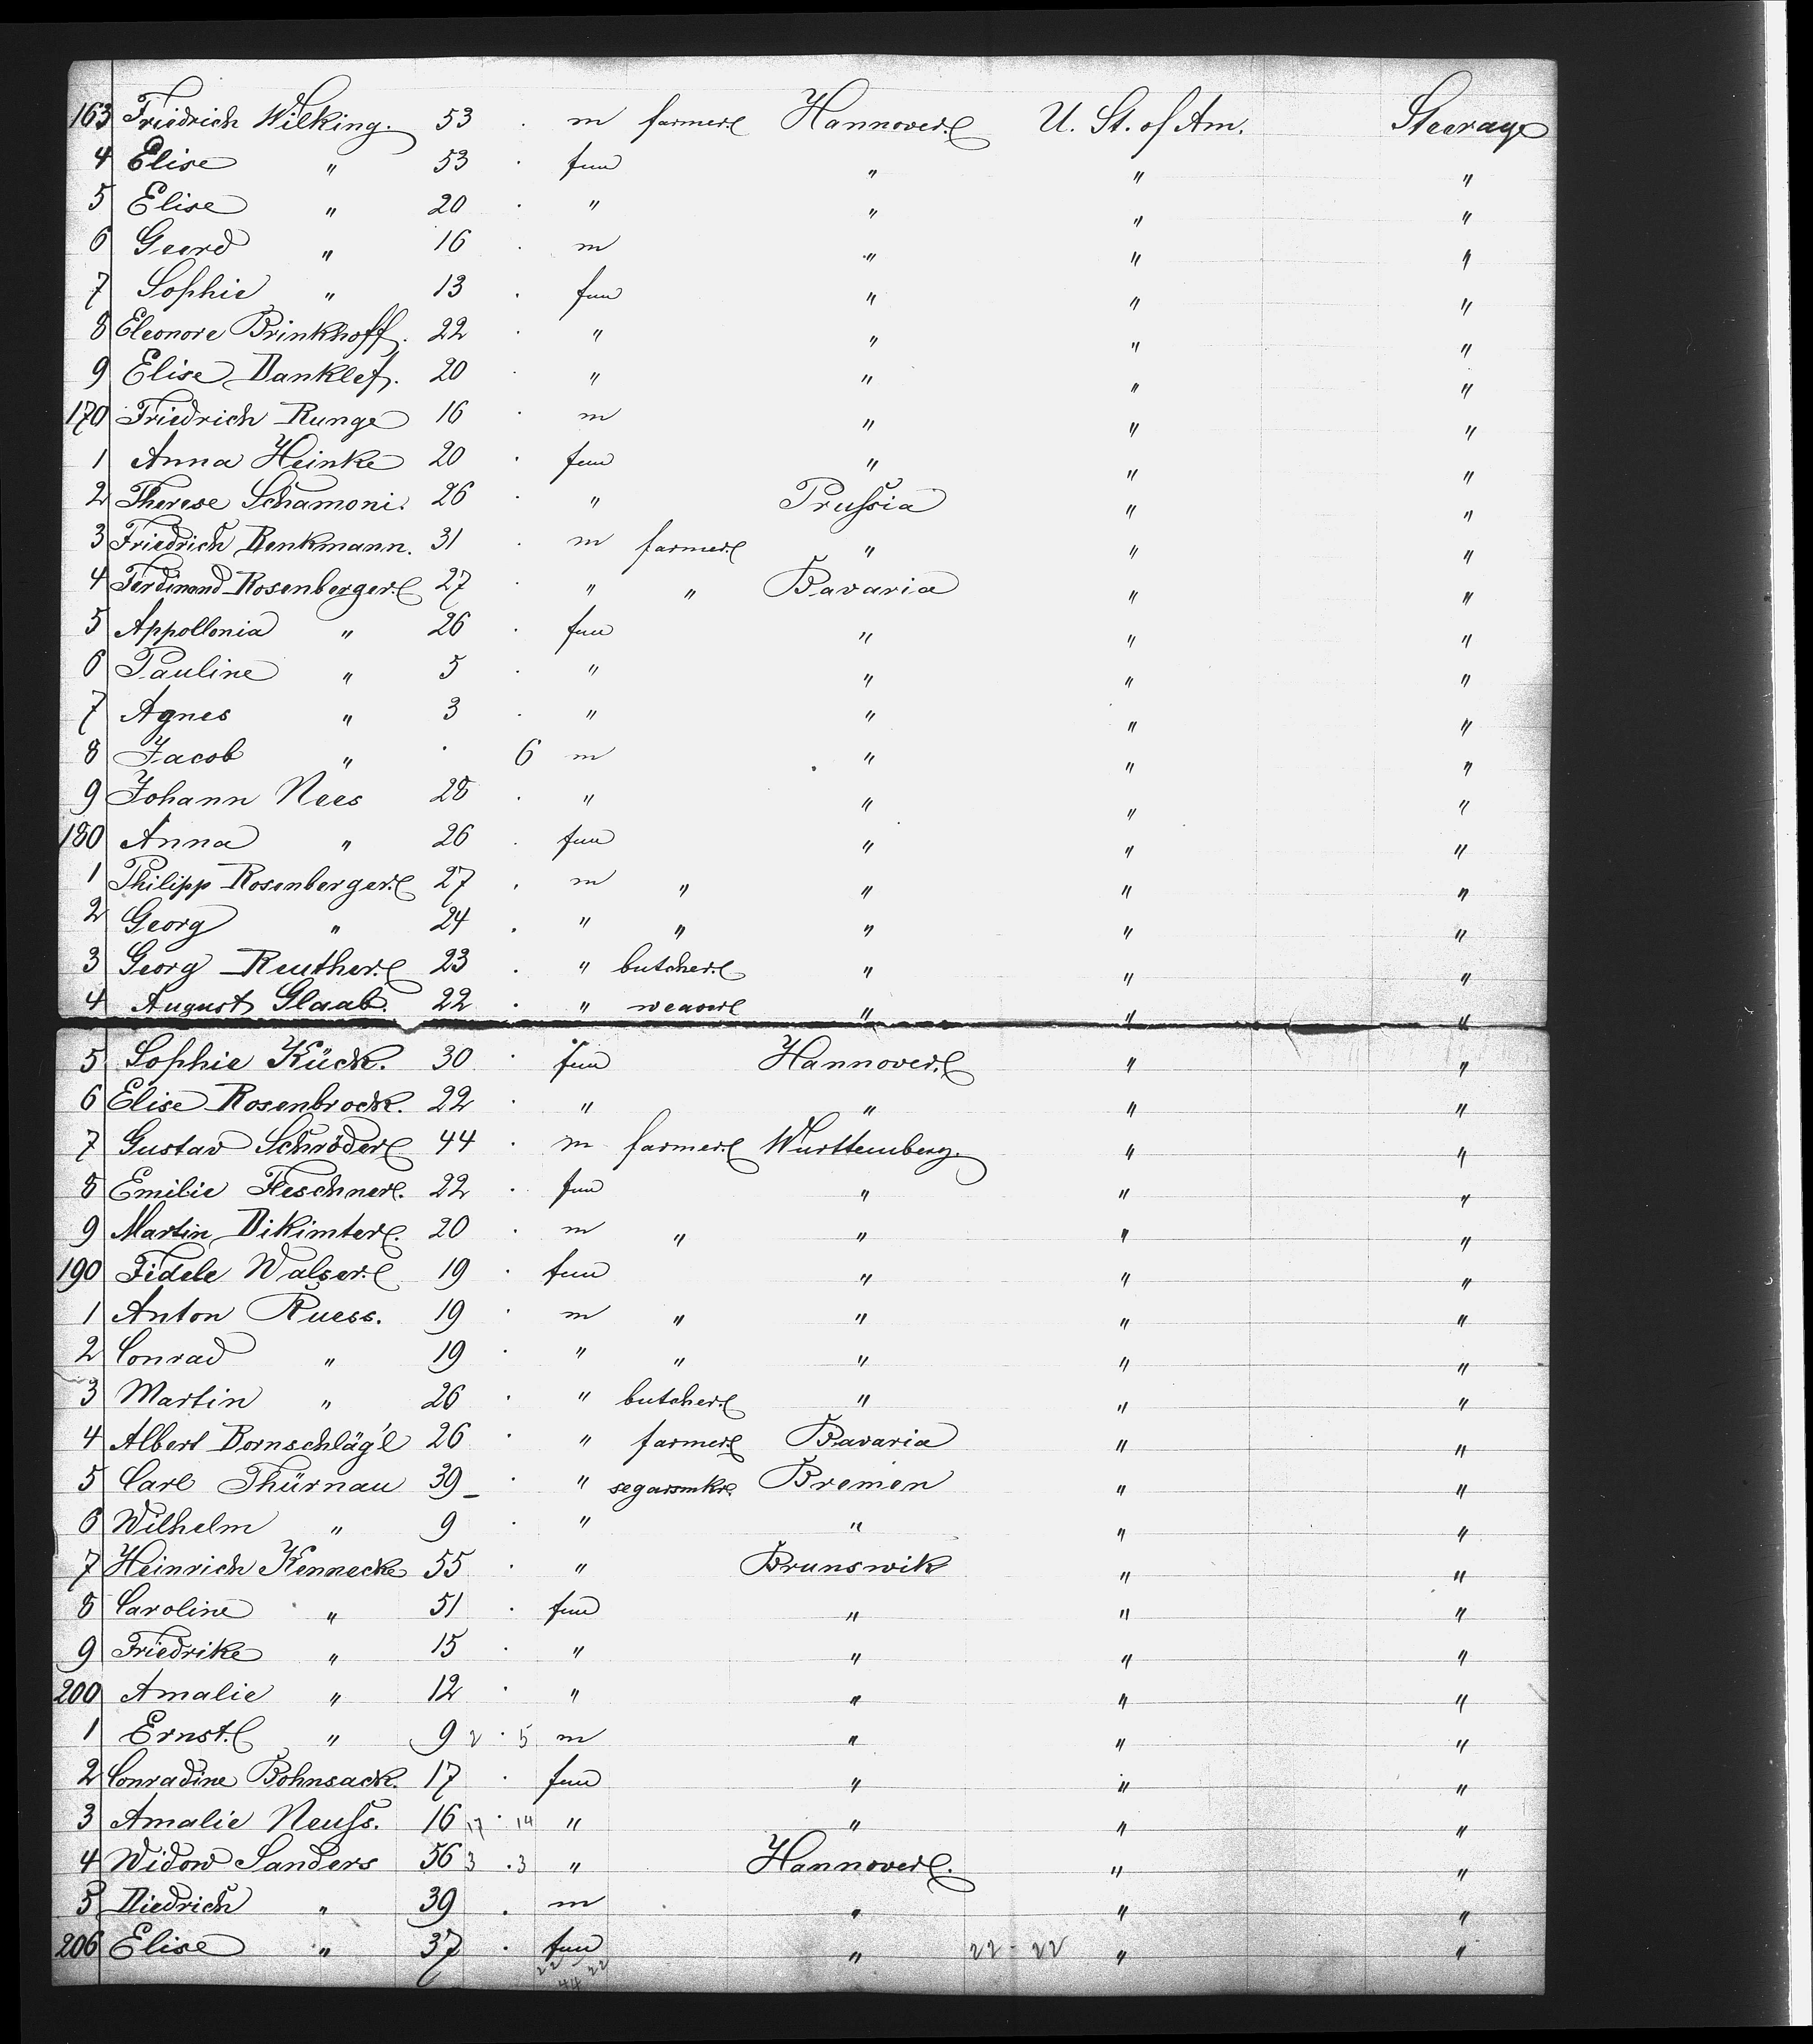 163 Friedrich Wilking. 53 . m farmer Hannover U. St. of Am. Steerage
4 Elise " 53 . fem " " "
5 Elise " 20 . " " " "
6 Geerd " 16 . m " " "
7 Sophie " 13 . fem " " "
8 Eleonore Brinkhoff. 22 . " " " "
9 Elise Danklef. 20 . " " " "
170 Friedrich Runge 16 . m " " "
1 Anna Heinke 20 . fem " " "
2 Therese Schamoni. 26 . " Prussia " "
3 Friedrich Renkmann. 31 . m farmer " " "
4 Ferdinand Rosenberger 27 . " " Bavaria " "
5 Appollonia " 26 . fem " " "
6 Pauline " 5 . " " " "
7 Agnes " 3 . " " " "
8 Jacob " . 6 m " " "
9 Johann Nees 28 . " " " "
180 Anna " 26 . fem " " "
1 Philipp Rosenberger 27 . m " " " "
2 Georg " 24 . " " " " "
3 Georg Reuther 23 . " butcher " " "
4 August Glaab. 22 . " weaver " " "
5 Sophie Kück. 30 . fem Hannover " "
6 Elise Rosenbrock. 22 . " " " "
7 Gustav Schröder 44 . m farmer Wurttemberg. " "
8 Emilie Fleschner. 22 . fem " " "
9 Martin Dikimter. 20 . m " " " "
190 Fidele Walser 19 . fem " " "
1 Anton Ruess. 19 . m " " " "
2 Conrad " 19 . " " " " "
3 Martin " 26 . " butcher " " "
4 Albert Dornschläg'l 26 . " farmer Bavaria " "
5 Carl Thürnau 39 . " segarmkr. Bremen " "
6 Wilhelm " 9 . " " " "
7 Heinrich Kennecke 55 . " Brunswik " "
8 Caroline " 51 . fem " " "
9 Friedrike " 15 . " " " "
200 Amalie " 12 . " " " "
1 Ernst " 9 2 . 5 m " " "
2 Conradine Bohnsack. 17 . fem " " "
3 Amalie Neuss. 16 17 . 14 " " " "
4 Widow Sanders 56 3 . 3 " Hannover. " "
5 Diedrich " 39 . m " " "
206 Elise " 37 . fem " 22 - 22 " "
22 22
44